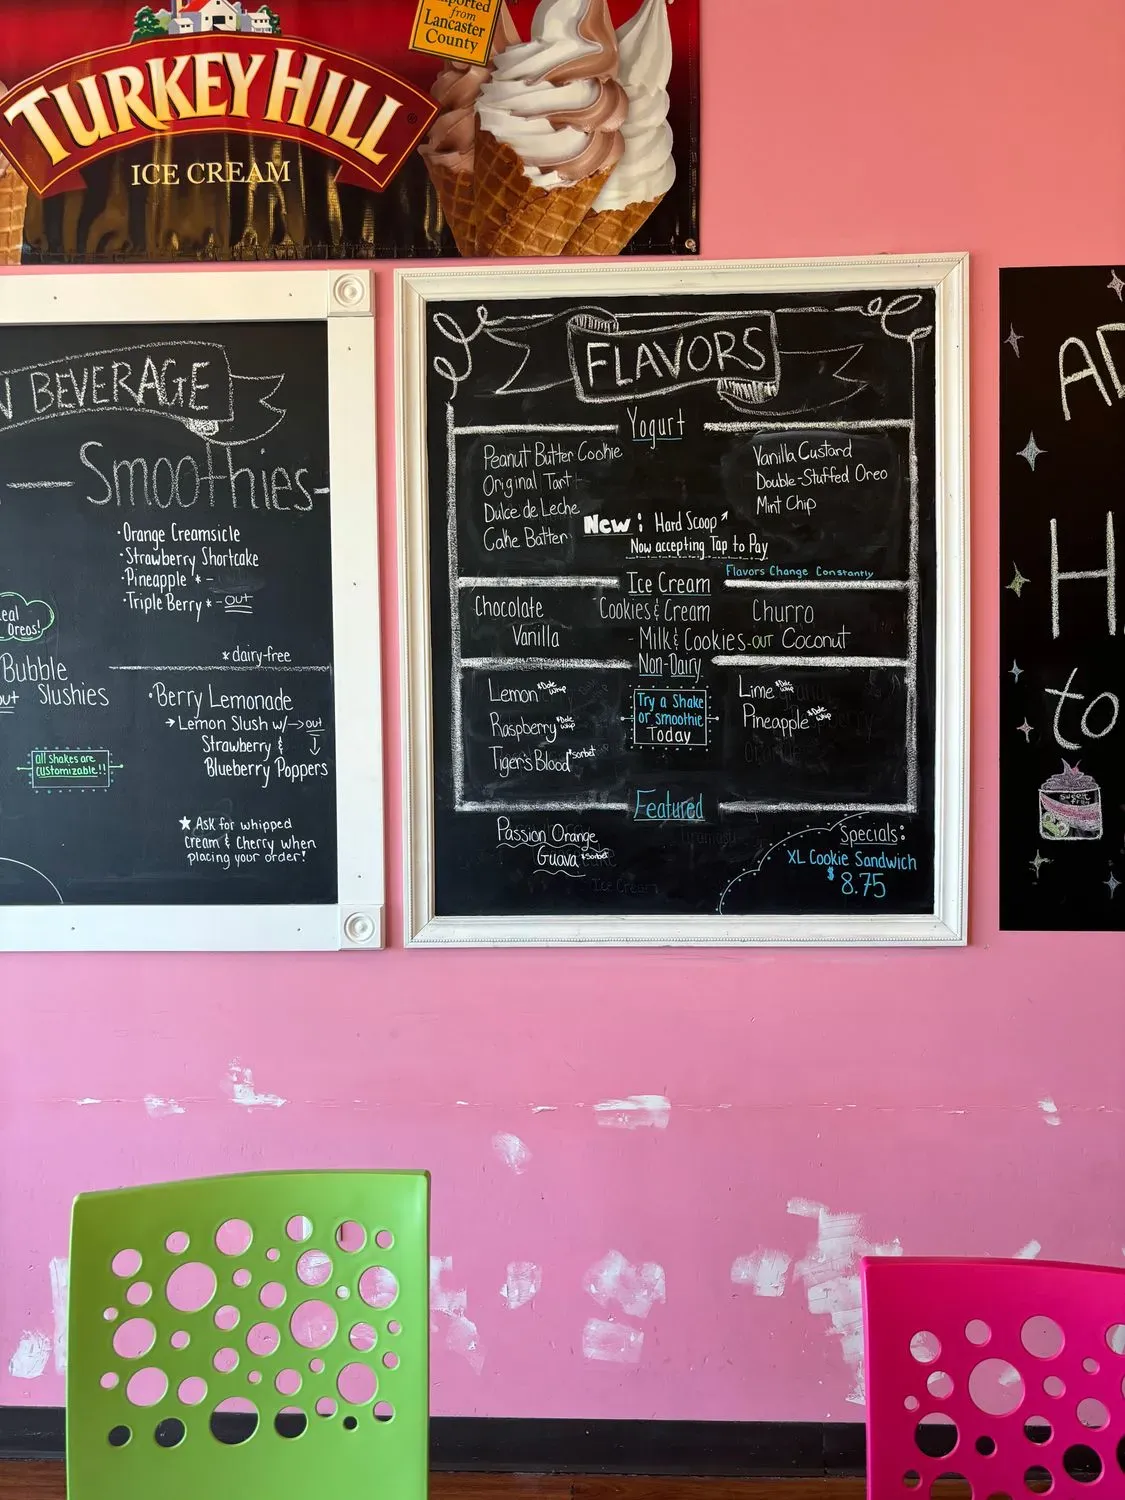 Imported
from
Lancaster
County
TURKEY HILL
ICE CREAM
N BEVERAGE
Smoothies
• Orange Creamsicle
• Strawberry Shortcake
• Pineapple * -
• Triple Berry * - out
* dairy-free
eal
Oreos!
Bubble
out Slushies
• Berry Lemonade
→ Lemon Slush w/ → out
Strawberry &
Blueberry Poppers
all shakes are
customizable!!
★ Ask for whipped
cream & cherry when
placing your order!
FLAVORS
Yogurt
Peanut Butter Cookie
Original Tart
Dulce de Leche
Cake Batter
Vanilla Custard
Double-Stuffed Oreo
Mint Chip
New: Hard Scoop
Now accepting Tap to Pay
Flavors Change Constantly
Ice Cream
Chocolate Cookies & Cream Churro
Vanilla - Milk & Cookies - out Coconut
Non-Dairy
Lemon *Dole whip
Raspberry *Dole whip
Tiger's Blood *sorbet
Try a Shake
or smoothie
Today
Lime *Dole whip
Pineapple *Dole whip
Featured
Passion Orange
Guava *Sorbet
Ice Cream
Specials:
XL Cookie Sandwich
$8.75
AD
H
to
sweet
frog